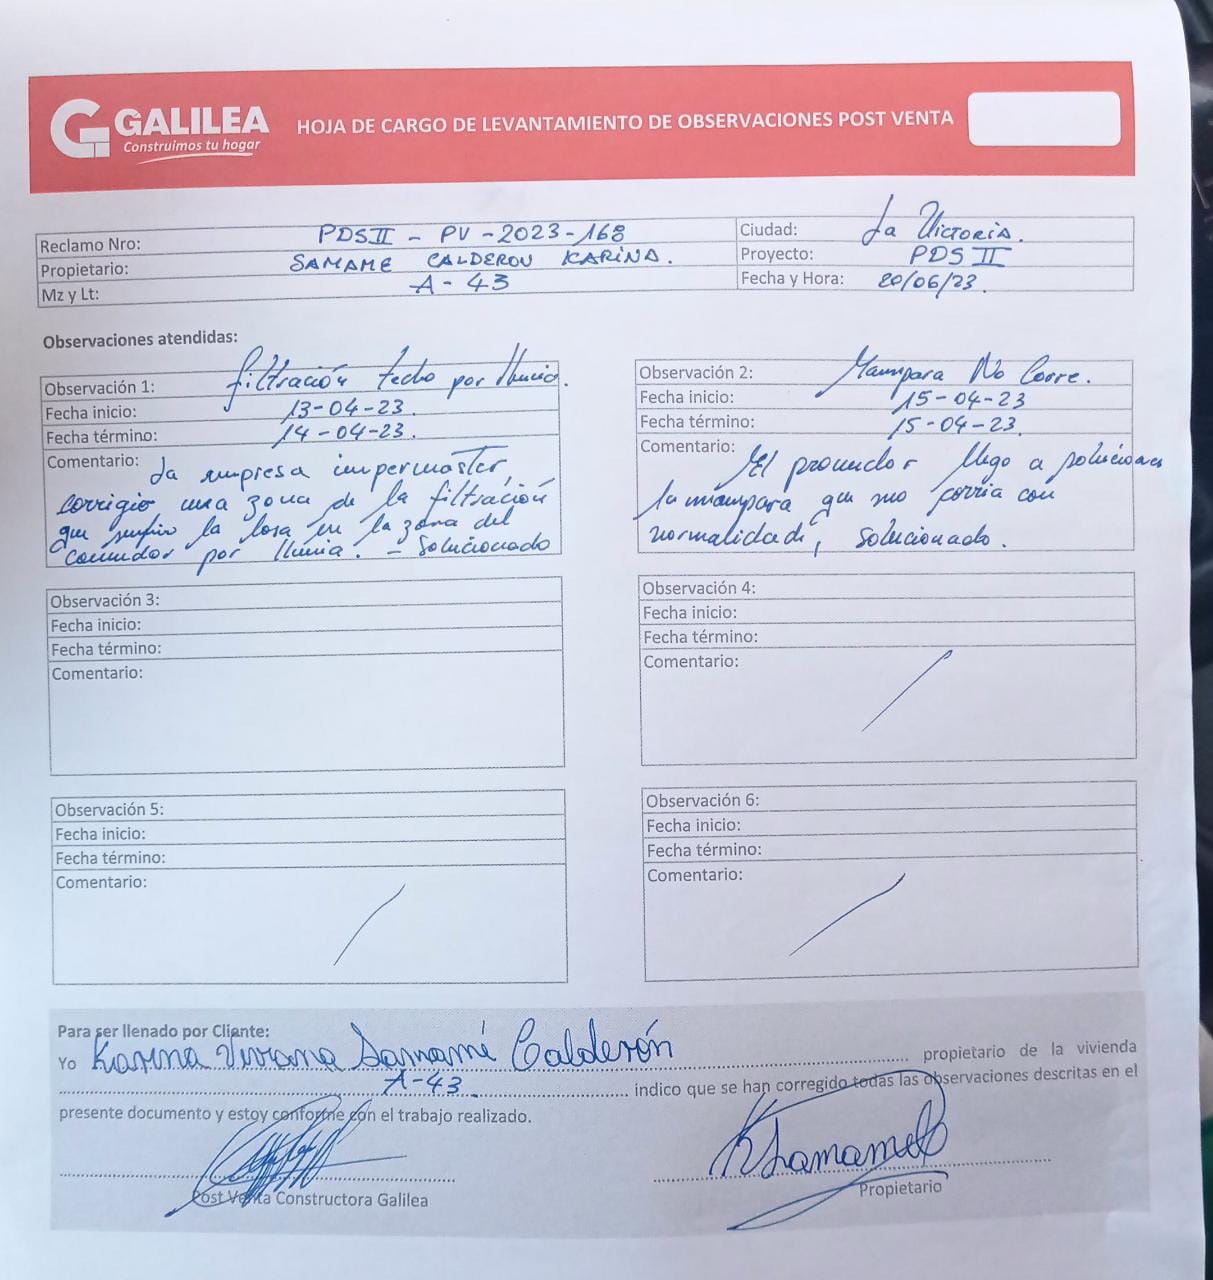 GALILEA
Construimos tu hogar
HOJA DE CARGO DE LEVANTAMIENTO DE OBSERVACIONES POST VENTA
Reclamo Nro: PDSII - PV - 2023 - 168
Propietario: SAMAME CALDERON KARINA.
Mz y Lt: A - 43
Ciudad: La Victoria.
Proyecto: PDS II
Fecha y Hora: 20/06/23.
Observaciones atendidas:
Observación 1: filtración techo por lluvia.
Fecha inicio: 13-04-23.
Fecha término: 14-04-23.
Comentario: La empresa impermaster,
corrigio una zona de la filtración
que sufrio la losa en la zona del
comedor por lluvia. - Solucionado
Observación 2: Mampara No Corre.
Fecha inicio: 15-04-23
Fecha término: 15-04-23.
Comentario: El proveedor llego a solucionar
la mampara que no corria con
normalidad, solucionado.
Observación 3:
Fecha inicio:
Fecha término:
Comentario:
Observación 4:
Fecha inicio:
Fecha término:
Comentario:
Observación 5:
Fecha inicio:
Fecha término:
Comentario:
Observación 6:
Fecha inicio:
Fecha término:
Comentario:
Para ser llenado por Cliente:
Yo Karina Viviana Samamé Calderón propietario de la vivienda
A-43. indico que se han corregido todas las observaciones descritas en el
presente documento y estoy conforme con el trabajo realizado.
Post Venta Constructora Galilea
KSamame
Propietario